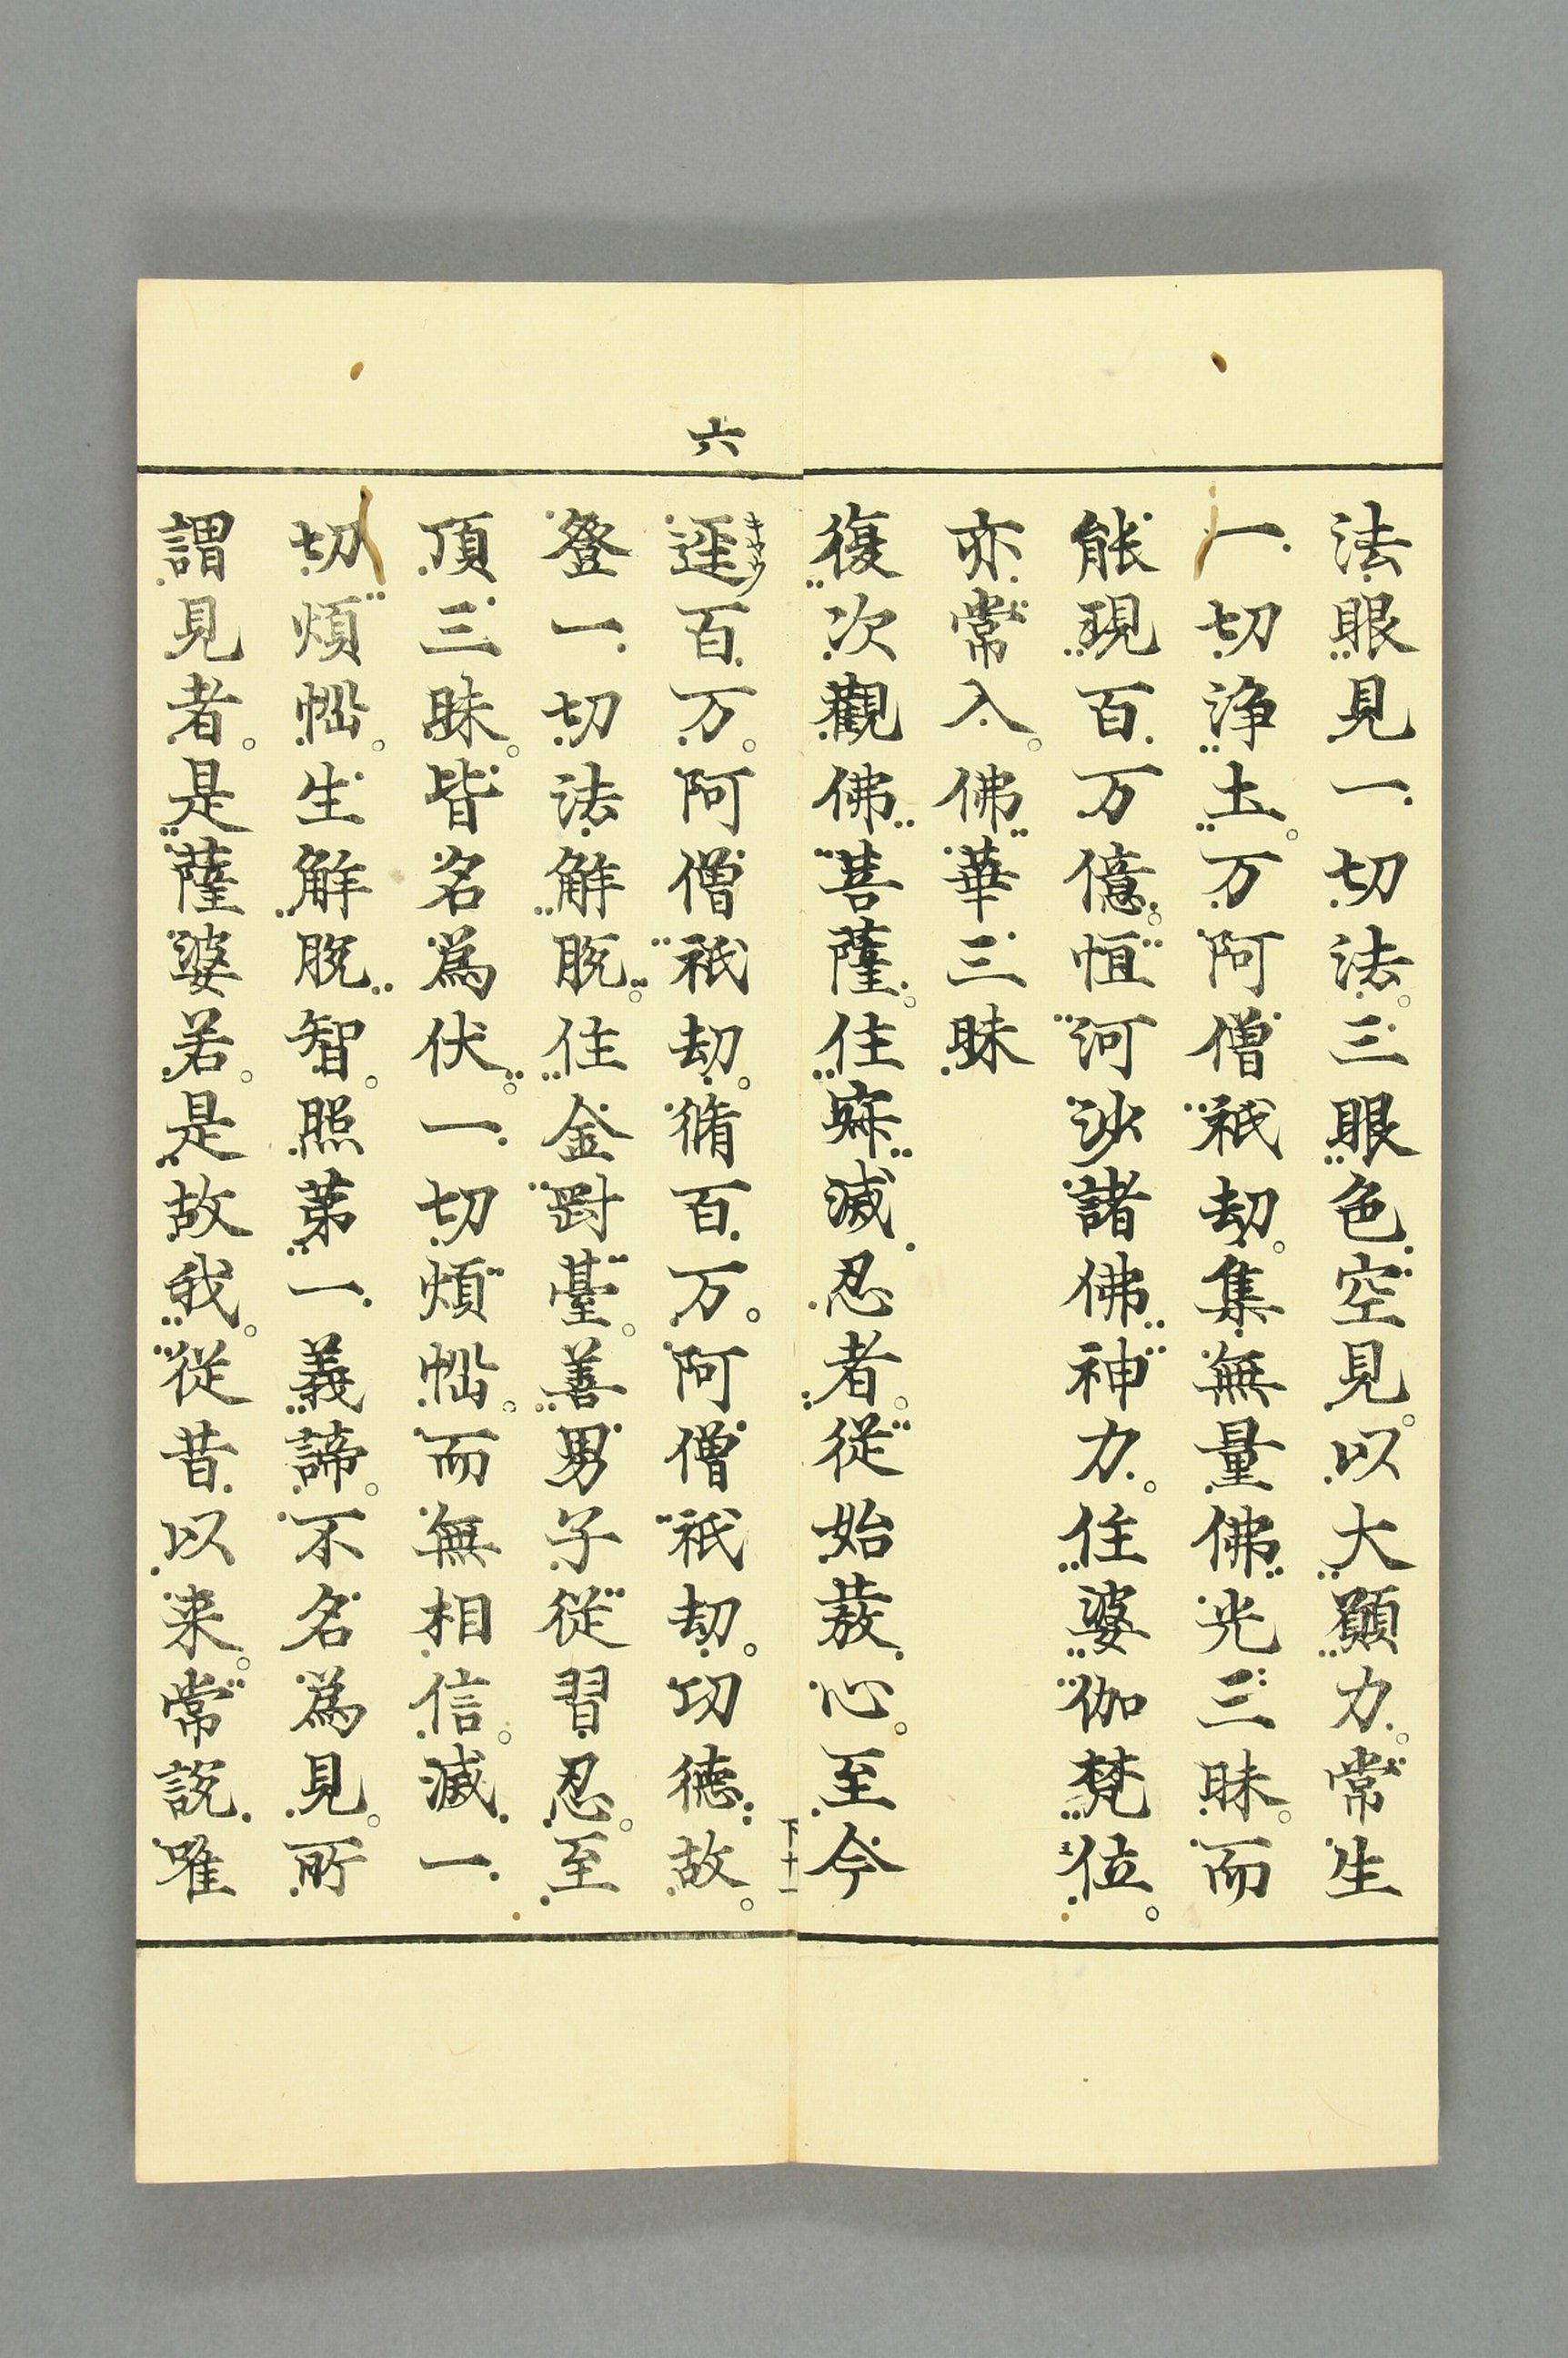 法眼見一切法。三眼色空見。以大願力。常生
一切浄土。万阿僧祇劫。集無量佛光三昧。而
能現百万億。恒河沙諸佛神力。住婆伽梵位。
亦常入。佛華三昧
復次觀佛菩薩。住寂滅忍者。從始發心。至今
下十一
六
逕百万。阿僧祇劫。脩百万。阿僧祇劫。功徳故。
キヤウ
登一切法解脱。住金剛臺。善男子從習忍。至
頂三昧。皆名爲伏。一切煩惱。而無相信。滅一
切煩惱。生解脱智。照第一義諦。不名爲見。所
謂見者。是薩婆若。是故我。從昔以来。常説唯